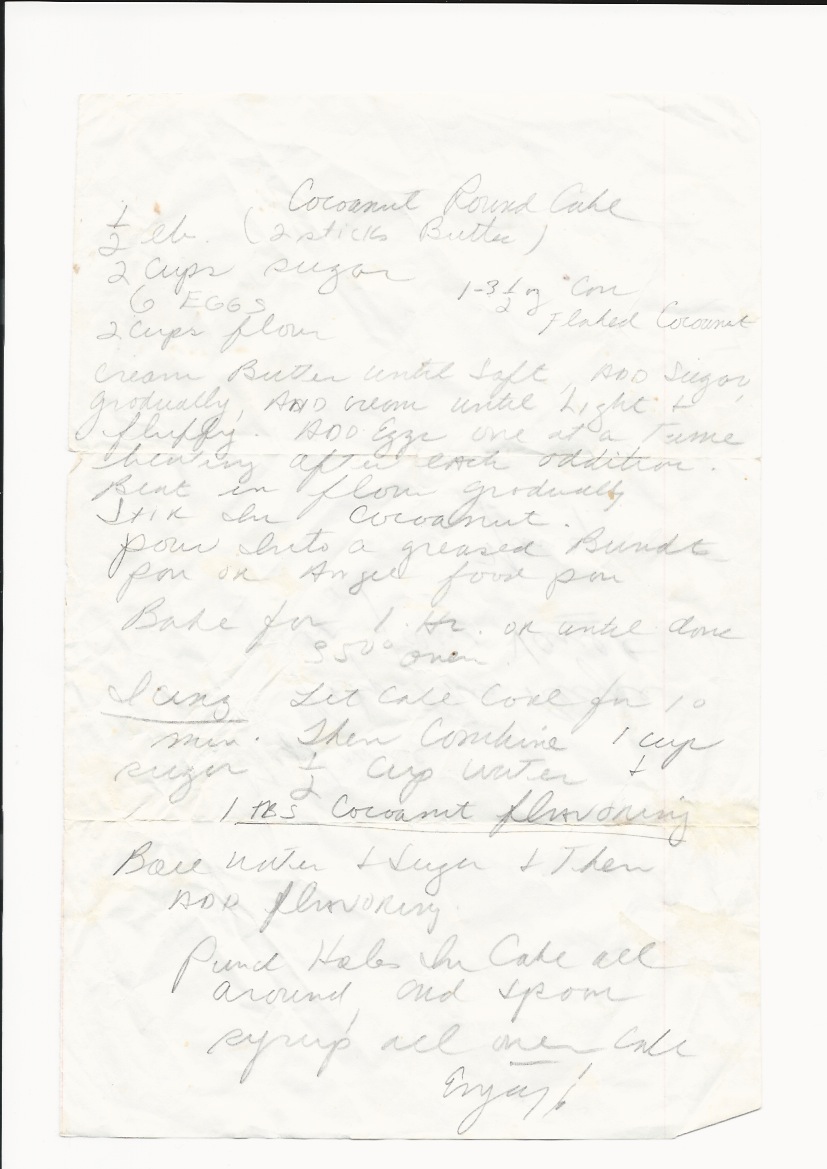 Cocoanut Pound Cake
1/2 lb. (2 sticks Butter)
2 Cups sugar
6 EGGS
1-3 1/2 oz Can
Flaked Cocoanut
2 cups flour
Cream Butter until Soft, ADD Sugar
gradually, AND cream until Light +
fluffy. ADD Eggs one at a Time
beating after each addition.
Beat in flour gradually
Stir In Cocoanut.
pour Into a greased Bundt
pan or Angel food pan
Bake for 1 Hr. or until done
350° oven
Icing Let Cake Cool for 10
min. Then Combine 1 cup
sugar 1/2 Cup water +
1 TBS Cocoanut flavoring
Boil water + Sugar + Then
ADD flavoring
Holes In Cake all
around and spoon
syrup all over Cake
Enjoy!